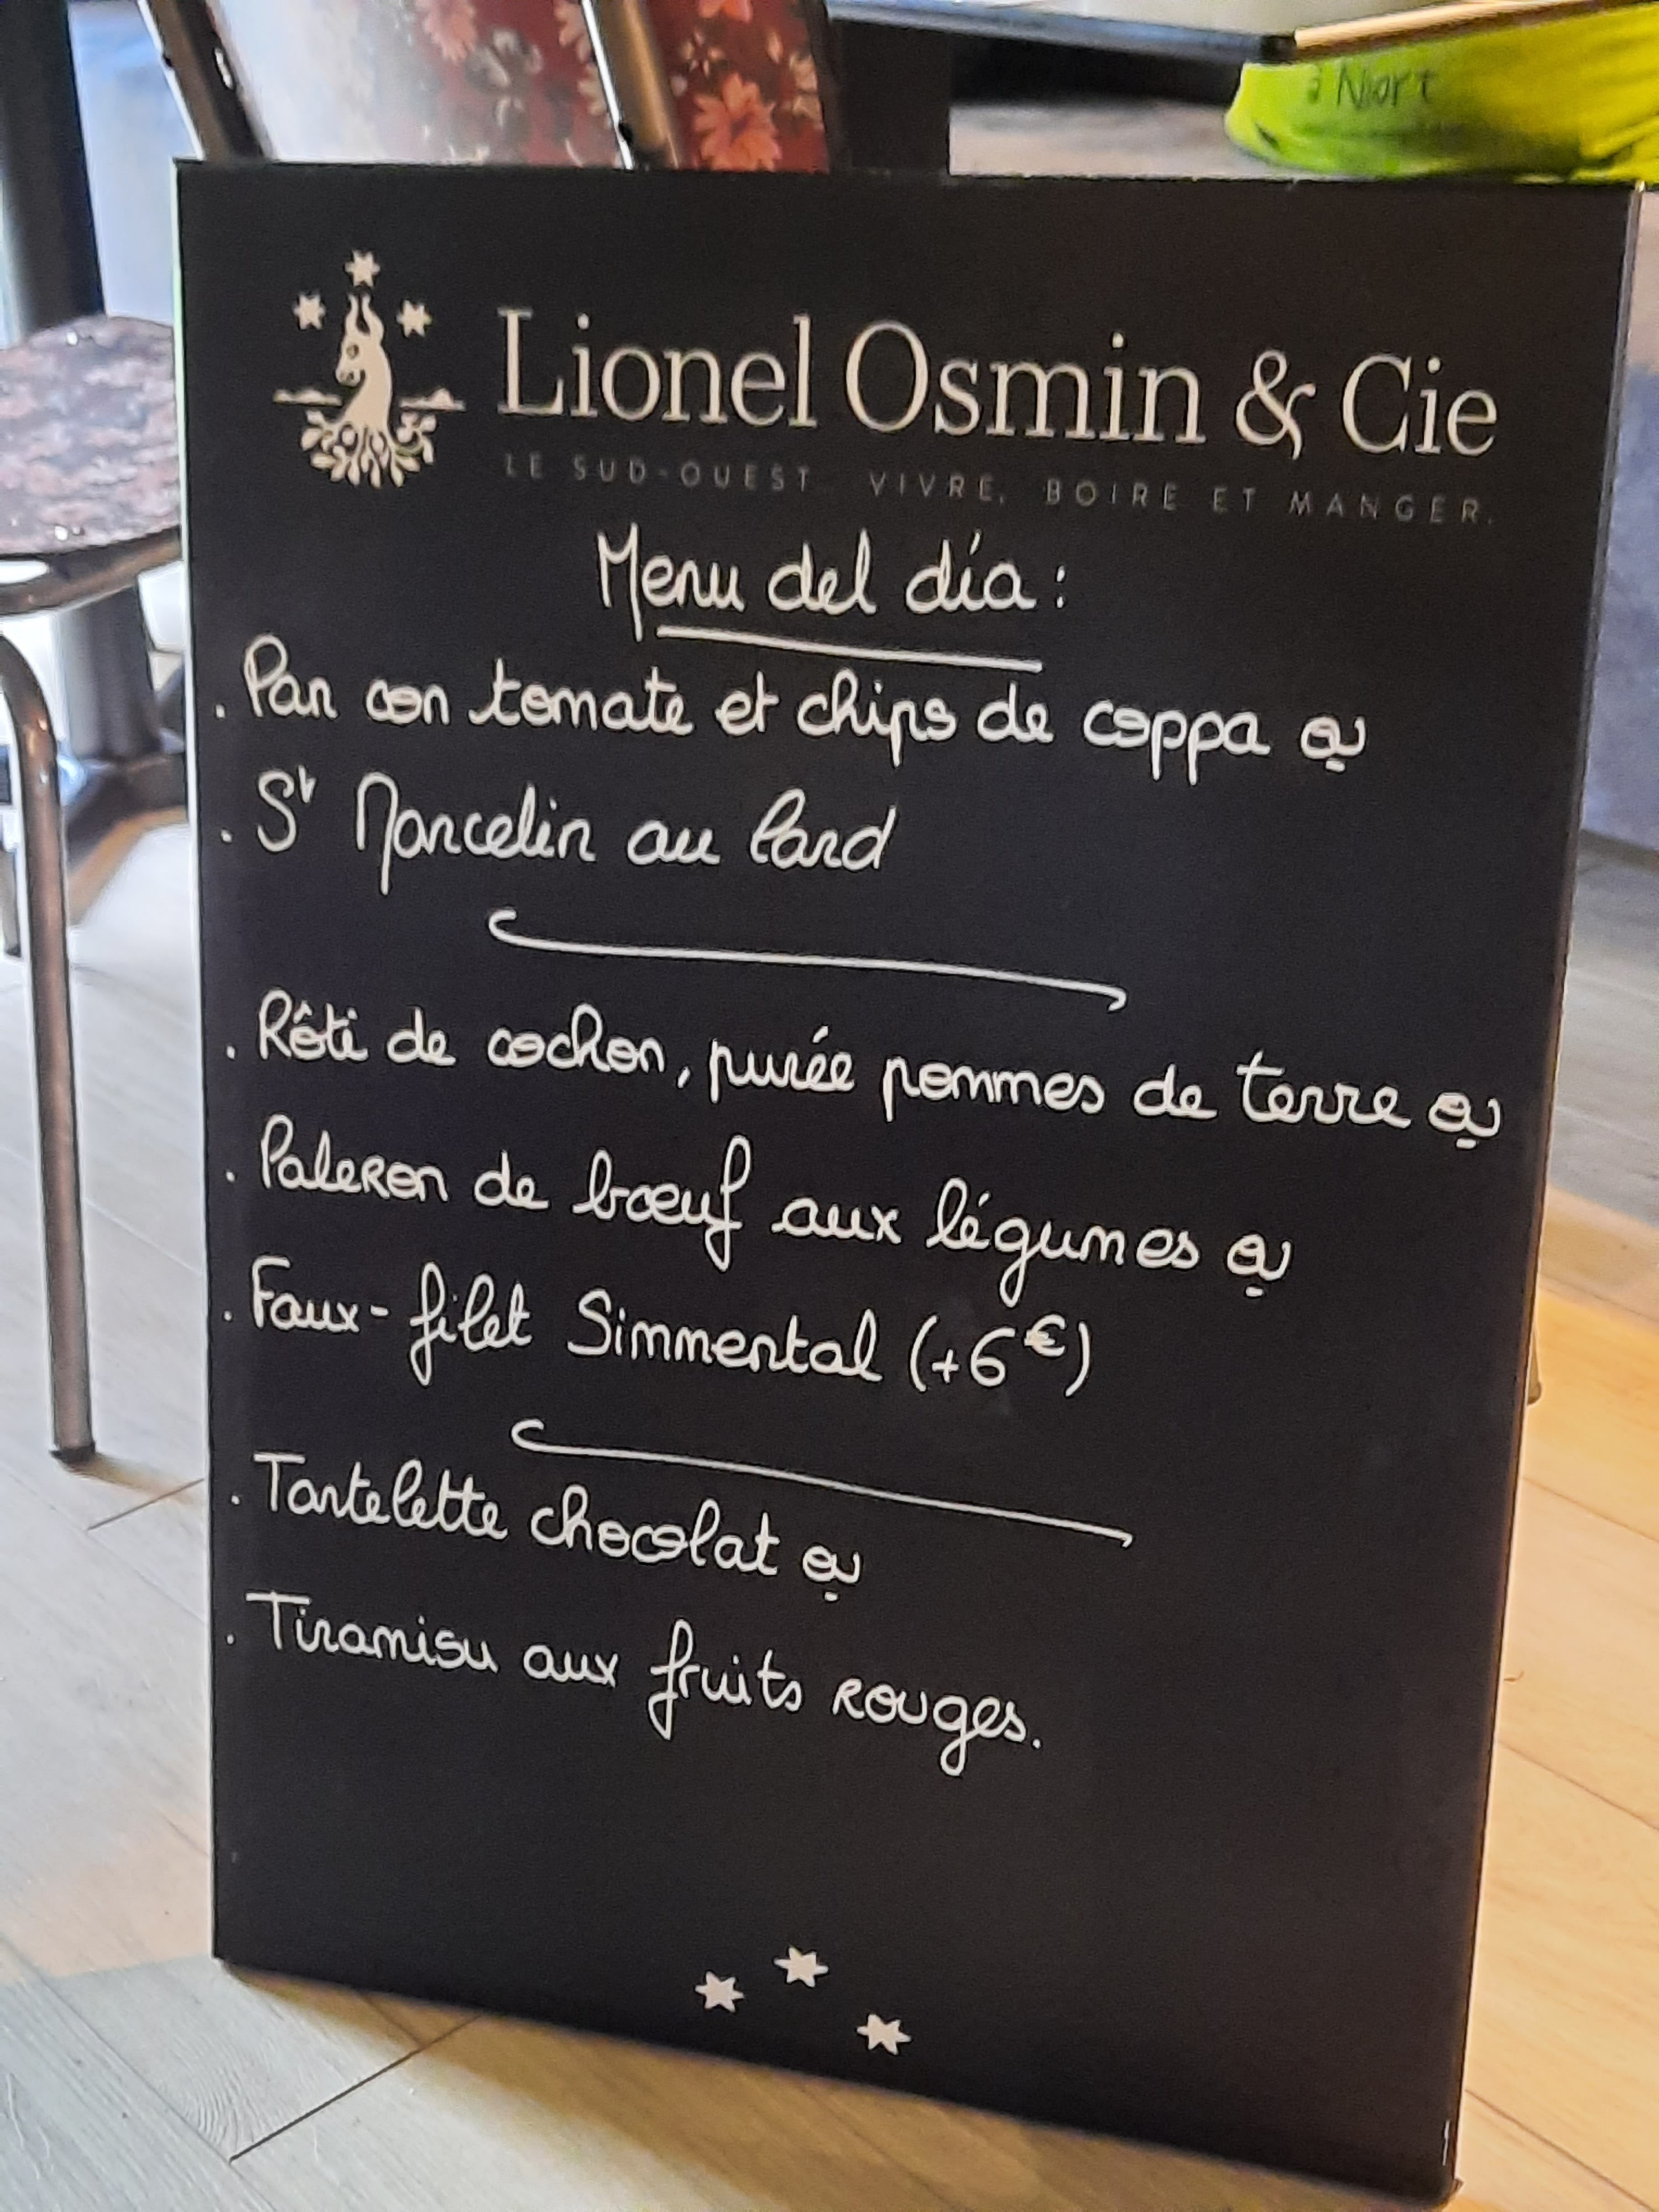 à Niort
Lionel Osmin & Cie
LE SUD-OUEST. VIVRE, BOIRE ET MANGER.
Menu del día :
. Pan con tomate et chips de coppa ou
. St Marcelin au lard
. Rôti de cochon, purée pommes de terre ou
. Paleron de bœuf aux légumes ou
. Faux-filet Simmental (+6€)
. Tartelette chocolat ou
. Tiramisu aux fruits rouges.